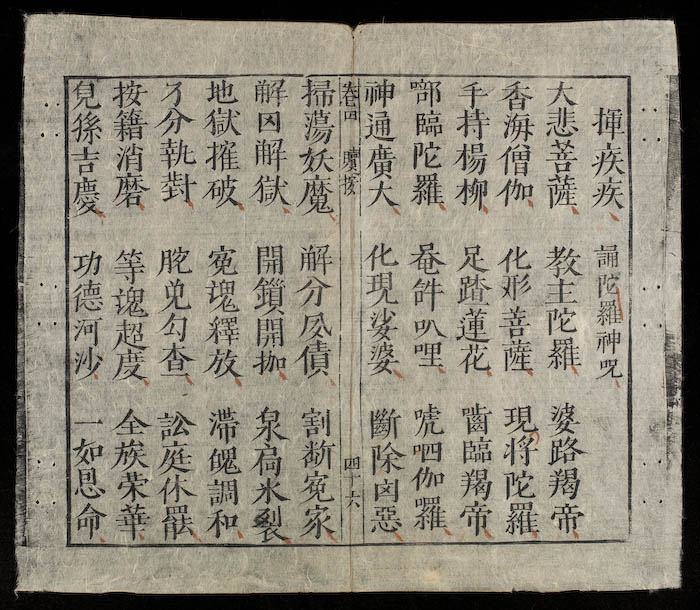 揮疾疾 誦陀羅神呪
大悲菩薩 教主陀羅 婆路羯帝
香海僧伽 化形菩薩 現将陀羅
手持楊柳 足踏蓮花 齒臨羯帝
臨陀羅 叭哩 唬呬伽囉
神通廣大 化現娑婆 斷除凶惡
卷四 四十六
掃蕩妖魔 解分債 割断寃家
解囚解獄 開鎖開枷 泉扃氷裂
地獄摧破 寃塊釋放 滯魄調和
分執對 脫免勾查 訟庭休罷
按籍消磨 等塊超度 全族荣華
兒孫吉慶 功德河沙 一如恩命